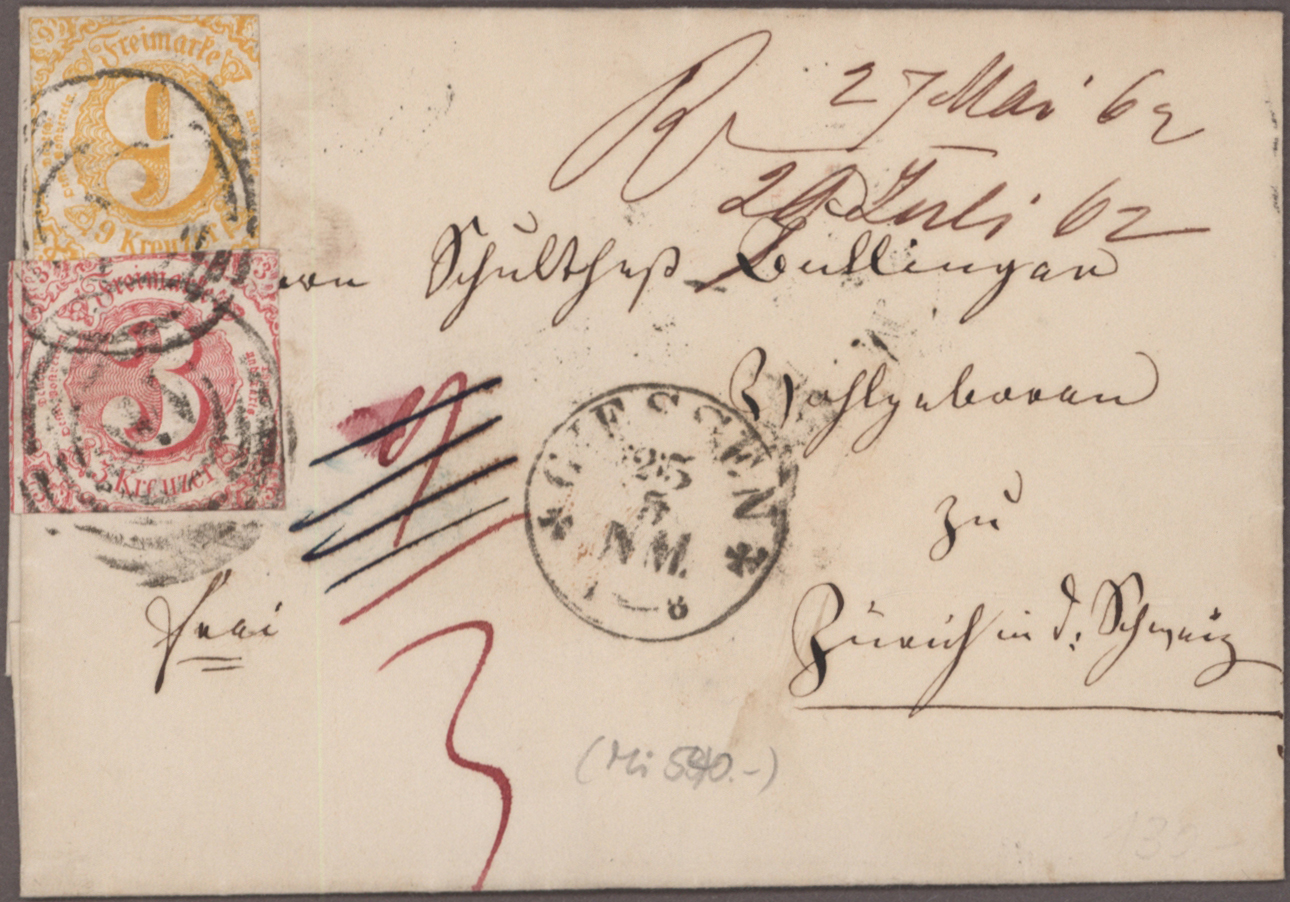 Freimarke
9
9 Kreuzer
Freimarke
3
Kreuzer
27 Mai 62
29 Juli 62
Schultheß Bullinger
Wohlgeboren
zu
Zürich in d. Schweiz
frei
GIESSEN
25
5
NM.
3
(Mi 540.-)